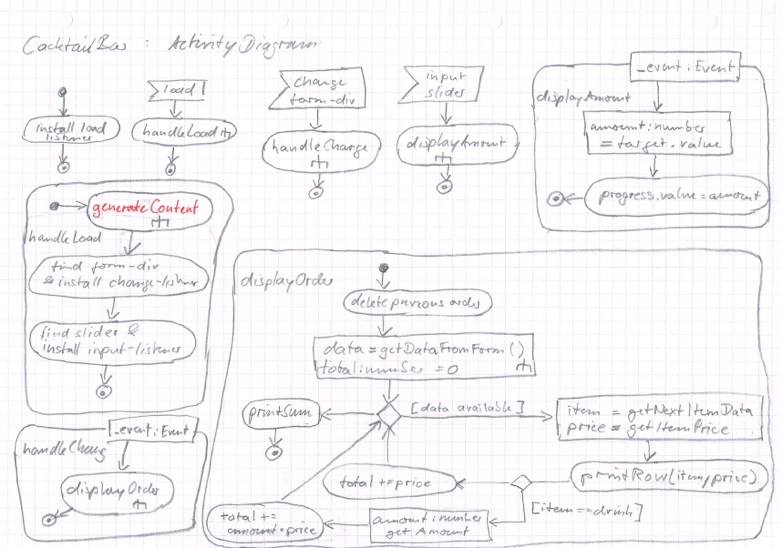 CocktailBar : Activity Diagram
install load
listener
load
handleLoad
change
form-div
handleChange
input
slider
displayAmount
_event: Event
displayAmount
amount: number
= target.value
progress.value = amount
generateContent
handleLoad
find form-div
& install change-listener
find slider &
install input-listener
_event: Event
handleChang
displayOrder
displayOrder
delete previous order
data = getDataFromForm()
total: number = 0
printSum
[data available]
item = getNextItemData
price = getItemPrice
printRow(item, price)
total += price
[item == drink]
amount: number
getAmount
total +=
amount * price